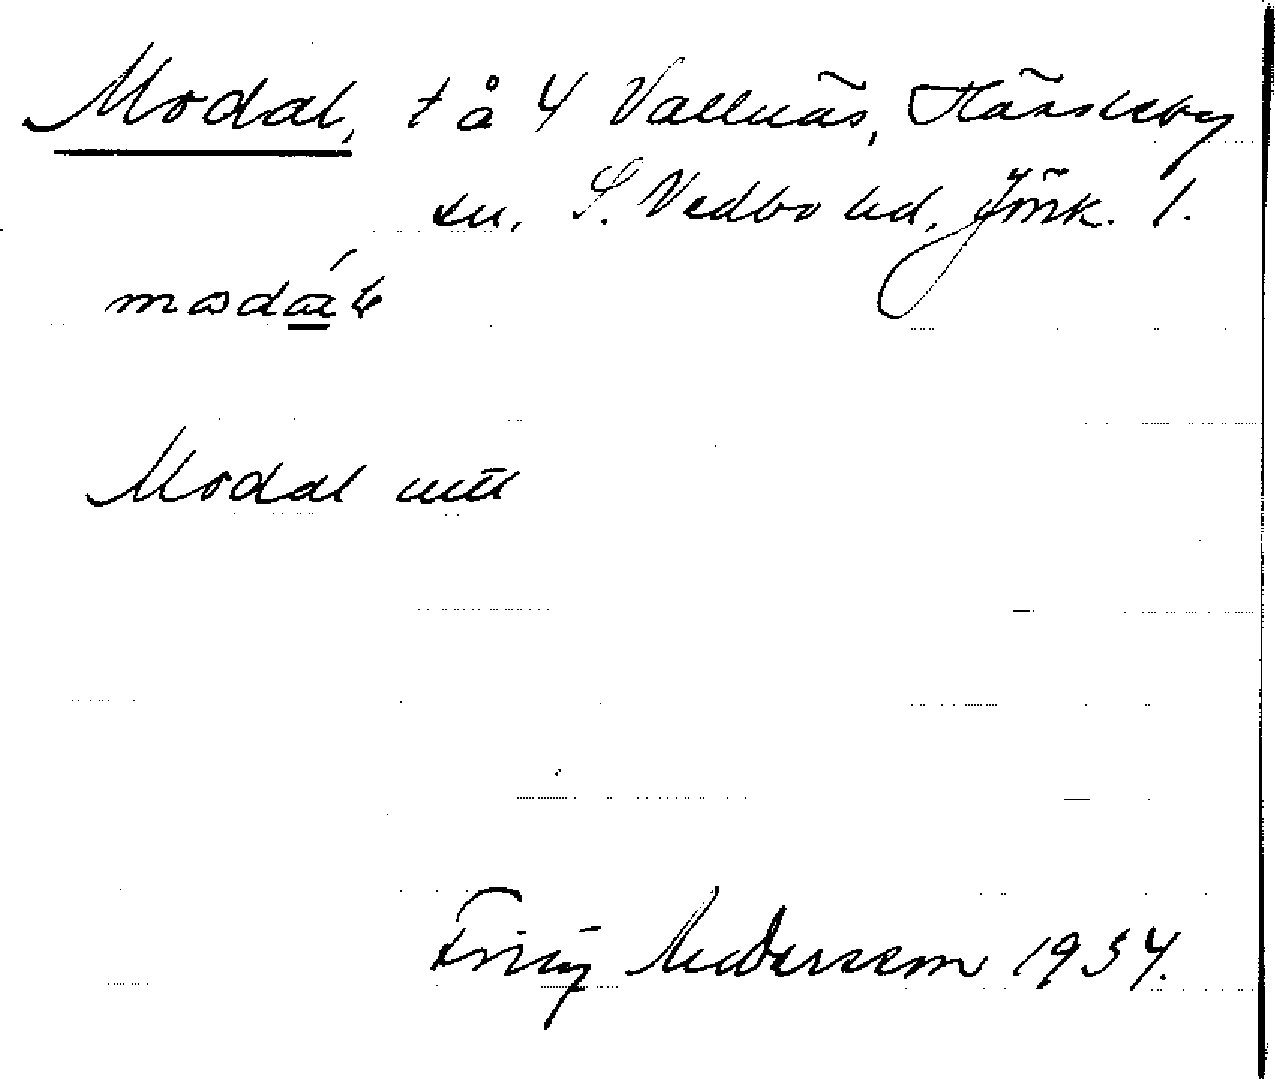 Modal, t å 4 Vallnäs, Hässleby
sn, S. Vedbo hd, Jönk. l.
Modal
Andersson 1934.